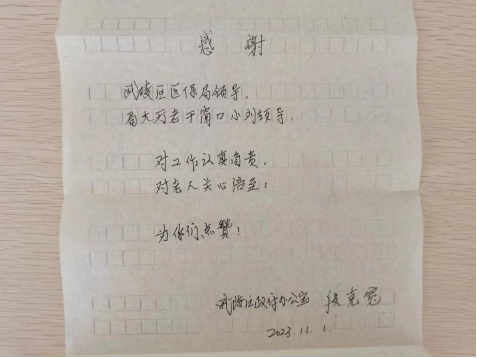 感谢
武陵区医保局领导,
局大厅老干窗口小刘领导,
对工作认真负责,
对老人关心备至!
为你们点赞!
武陵区政府办公室 段克
2023.11.1.